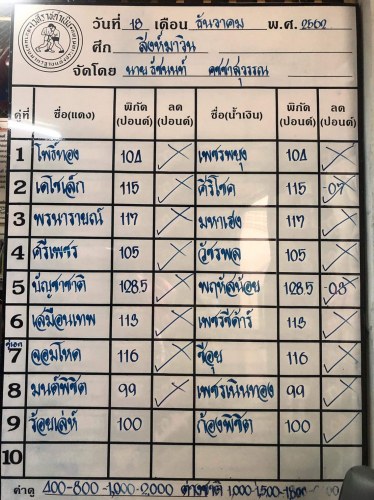 วันที่ 18 เดือน ธันวาคม พ.ศ. 2562
ศึก สิงห์มาวิน
จัดโดย นายธัชนนท์
คู่ที่ ชื่อ(แดง) พิกัด (ปอนด์) ลด (ปอนด์) ชื่อ(น้ำเงิน) พิกัด (ปอนด์) ลด (ปอนด์)
1 โพธิ์ทอง 104 เพชรพยุง 104
2 เดโชเล็ก 115 ศิริโชค 115 -0.7
3 พรนารายณ์ 117 มหาเฮง 117
4 ศิริเพชร 105 วัชรพล 105
5 บัญชาชาติ 128.5 พฤหัสน้อย 128.5 -0.3
6 เสมือนเทพ 113 เพชรซีดาร์ 113
คู่เอก
7 จอมโหด 116 ซีอุย 116
8 มนต์พิชิต 99 เพชรเนินทอง 99
9 ร้อยเล่ห์ 100 ก้องพิชิต 100
10
ค่าดู 400-800-1,000-2,000 ต่างชาติ 1,000-1,500-1,800-